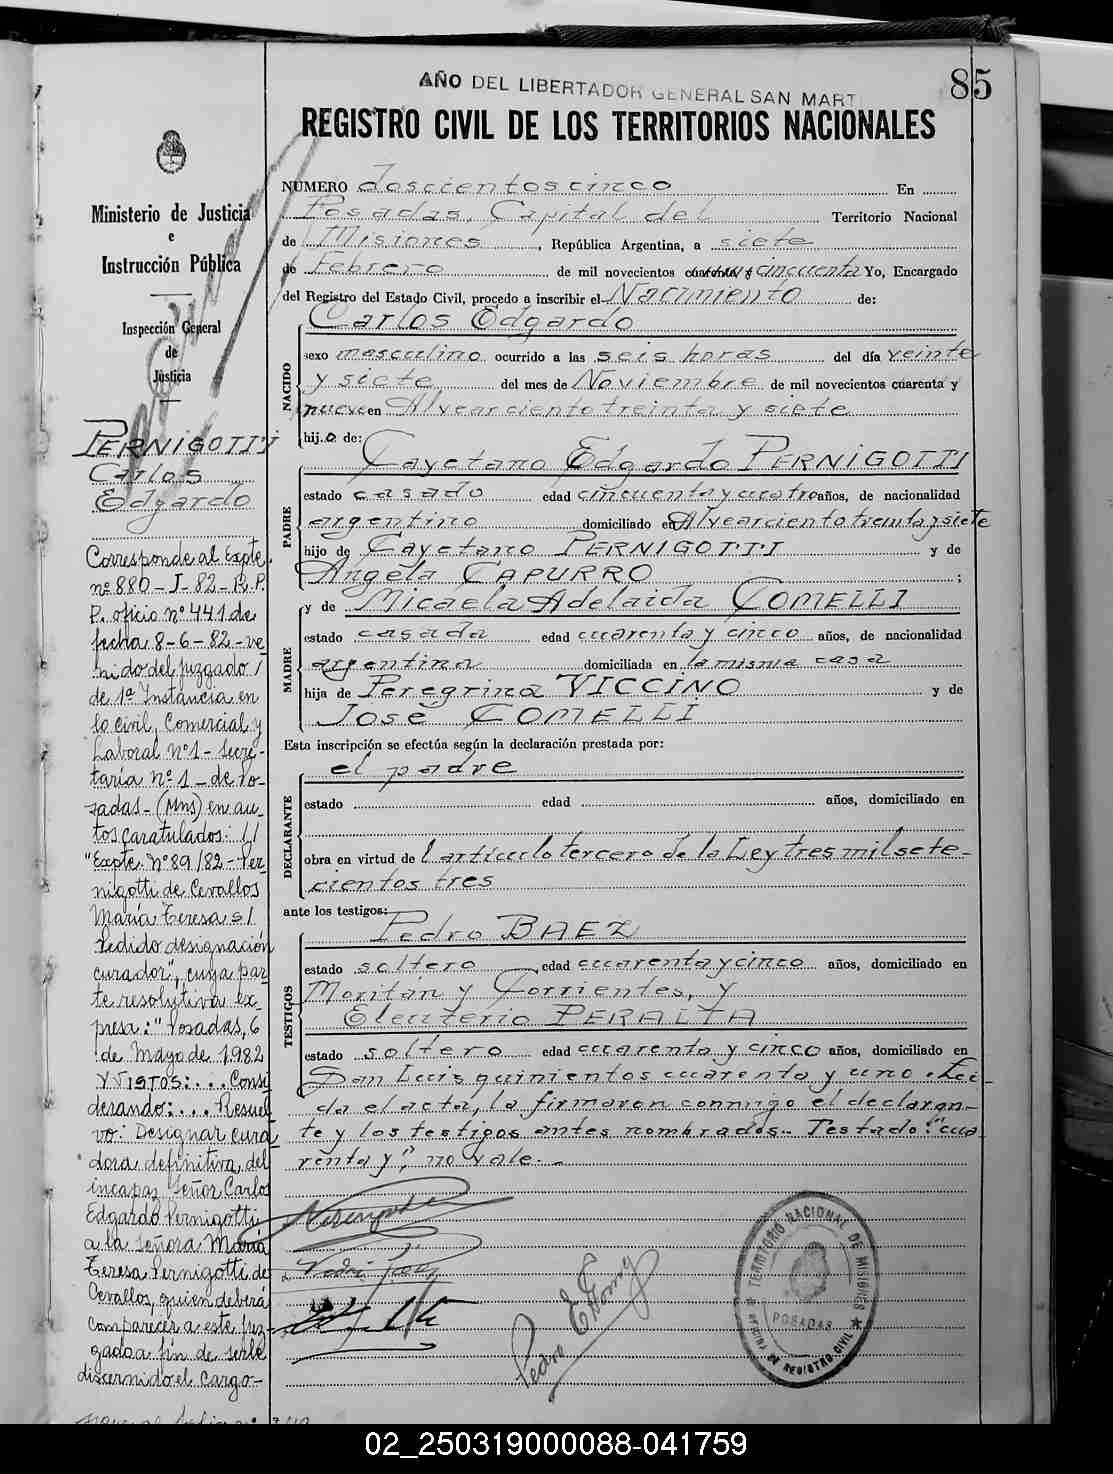 85
AÑO DEL LIBERTADOR GENERAL SAN MART
REGISTRO CIVIL DE LOS TERRITORIOS NACIONALES
Ministerio de Justicia
e
Instrucción Pública
Inspección General
de
Justicia
PERNIGOTTI
Carlos
Edgardo
Corresponde al Expte.
nº 880-J-82-R.P.
P. oficio nº 441 de
fecha 8-6-82-ve
nido del juzgado /
de 1ª Instancia en
lo civil, Comercial y
Laboral nº 1 - Secre-
taría nº 1 - de Po-
sadas - (Mns) en au-
tos caratulados: //
"Expte. Nº 89/82 - Per-
nigotti de Cevallos
María Teresa s/.
Pedido designación
curador", cuya par-
te resolutiva ex-
presa: "Posadas, 6
de Mayo de 1982
Y VISTOS: ... Consi
derando: ... Resuel
vo: Designar cura
dora definitiva del
incapaz Señor Carlos
Edgardo Pernigotti
a la Señora María
Teresa Pernigotti de
Cevallos, quien deberá
comparecer a este juz-
gado a fin de serle
discernido el cargo-
NUMERO doscientos cinco En
Posadas, Capital del Territorio Nacional
de Misiones, República Argentina, a siete
de Febrero de mil novecientos cuarenta y cincuenta Yo, Encargado
del Registro del Estado Civil, procedo a inscribir el Nacimiento de:
NACIDO
Carlos Edgardo
sexo masculino ocurrido a las seis horas del día veinte
y siete del mes de Noviembre de mil novecientos cuarenta y
nueve en Alvear ciento treinta y siete
hijo de:
PADRE
Cayetano Edgardo PERNIGOTTI
estado casado edad cincuenta y cuatro años, de nacionalidad
argentino domiciliado en Alvear ciento treinta y siete
hijo de Cayetano PERNIGOTTI y de
Angela CAPURRO ;
MADRE
y de Micaela Adelaida COMELLI
estado casada edad cuarenta y cinco años, de nacionalidad
argentina domiciliada en la misma casa
hija de Peregrina VICCINO y de
José COMELLI
Esta inscripción se efectúa según la declaración prestada por:
DECLARANTE
el padre
estado edad años, domiciliado en
obra en virtud del artículo tercero de la Ley tres mil sete-
cientos tres
ante los testigos:
TESTIGOS
Pedro BAEZ
estado soltero edad cuarenta y cinco años, domiciliado en
Moritan y Corrientes, y
Eleuterio PERALTA
estado soltero edad cuarenta y cinco años, domiciliado en
San Luis quinientos cuarenta y uno. Leí-
da el acta, la firmaron conmigo el declaran-
te y los testigos antes nombrados.- Testado: "cua
renta y", no vale.-
TERRITORIO NACIONAL DE MISIONES
POSADAS
OFICINA DE REGISTRO CIVIL
02_250319000088-041759